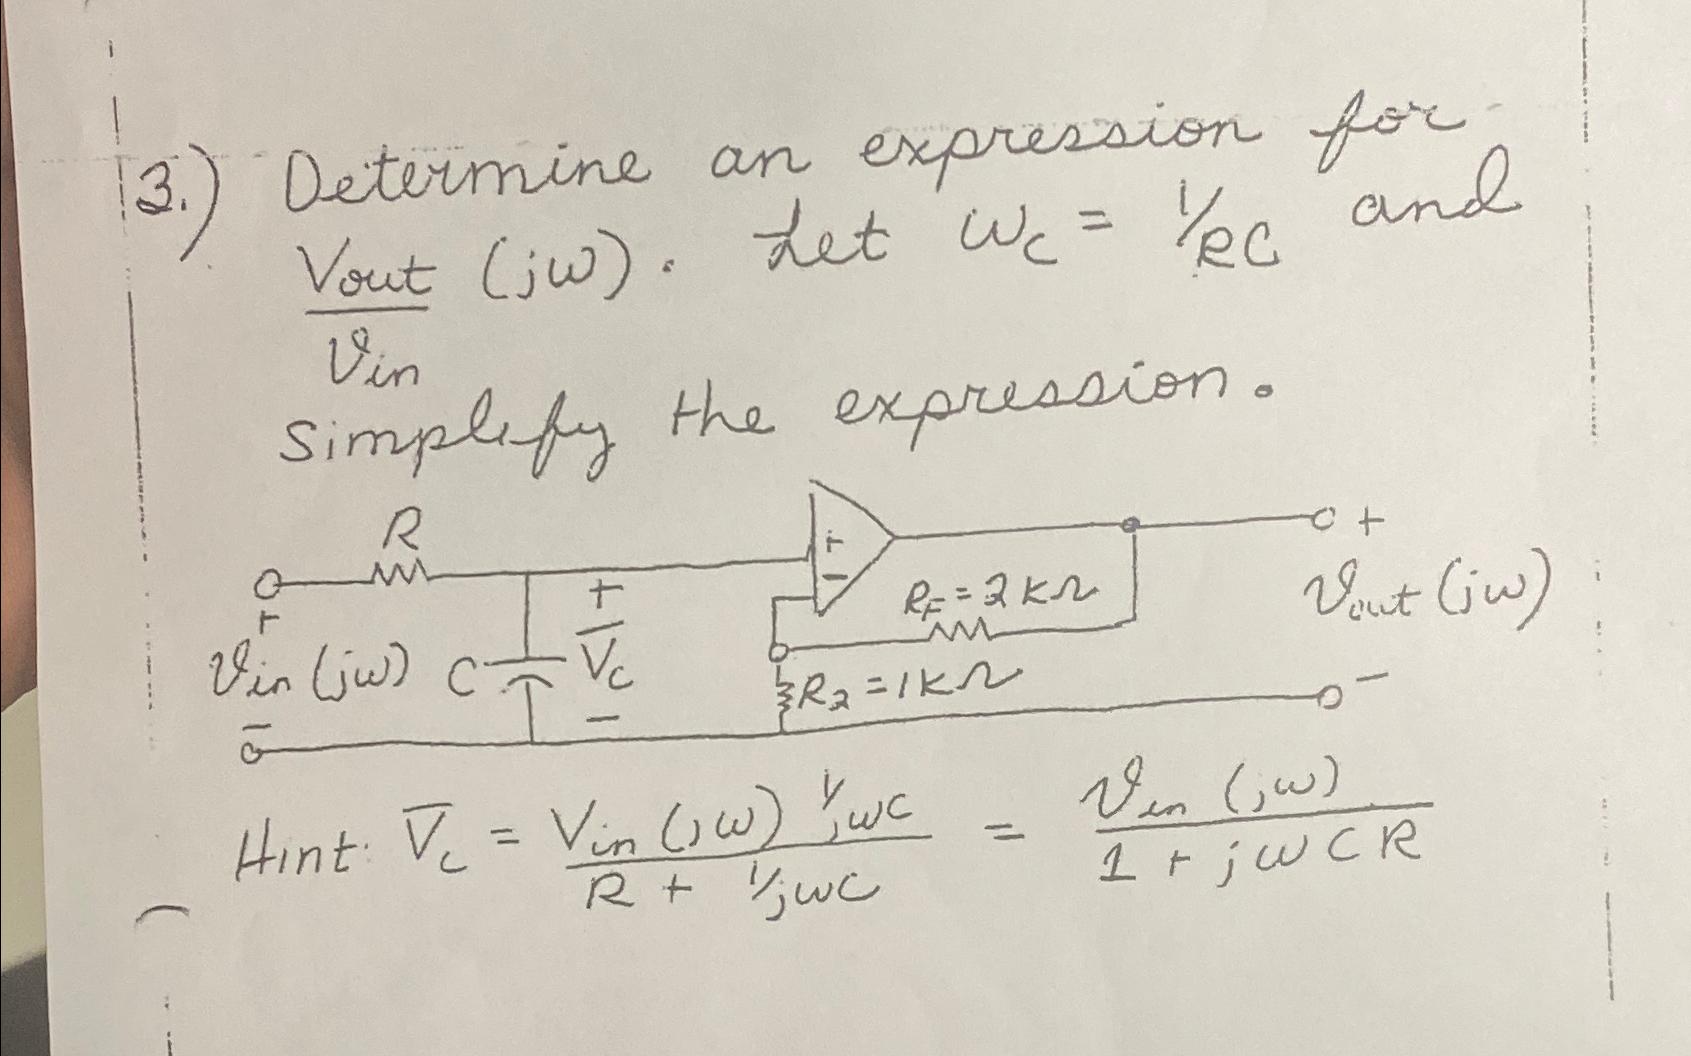 3.) Determine an expression for
Vout/Vin (jω). Let ωc = 1/RC and
simplify the expression.
R
+
Vin (jω)
-
C
+
V̅c
-
+
-
RF = 2 kΩ
R2 = 1 kΩ
+
Vout (jω)
-
Hint: V̅c = Vin (jω) 1/jωC / R + 1/jωC = Vin (jω) / 1 + jωCR